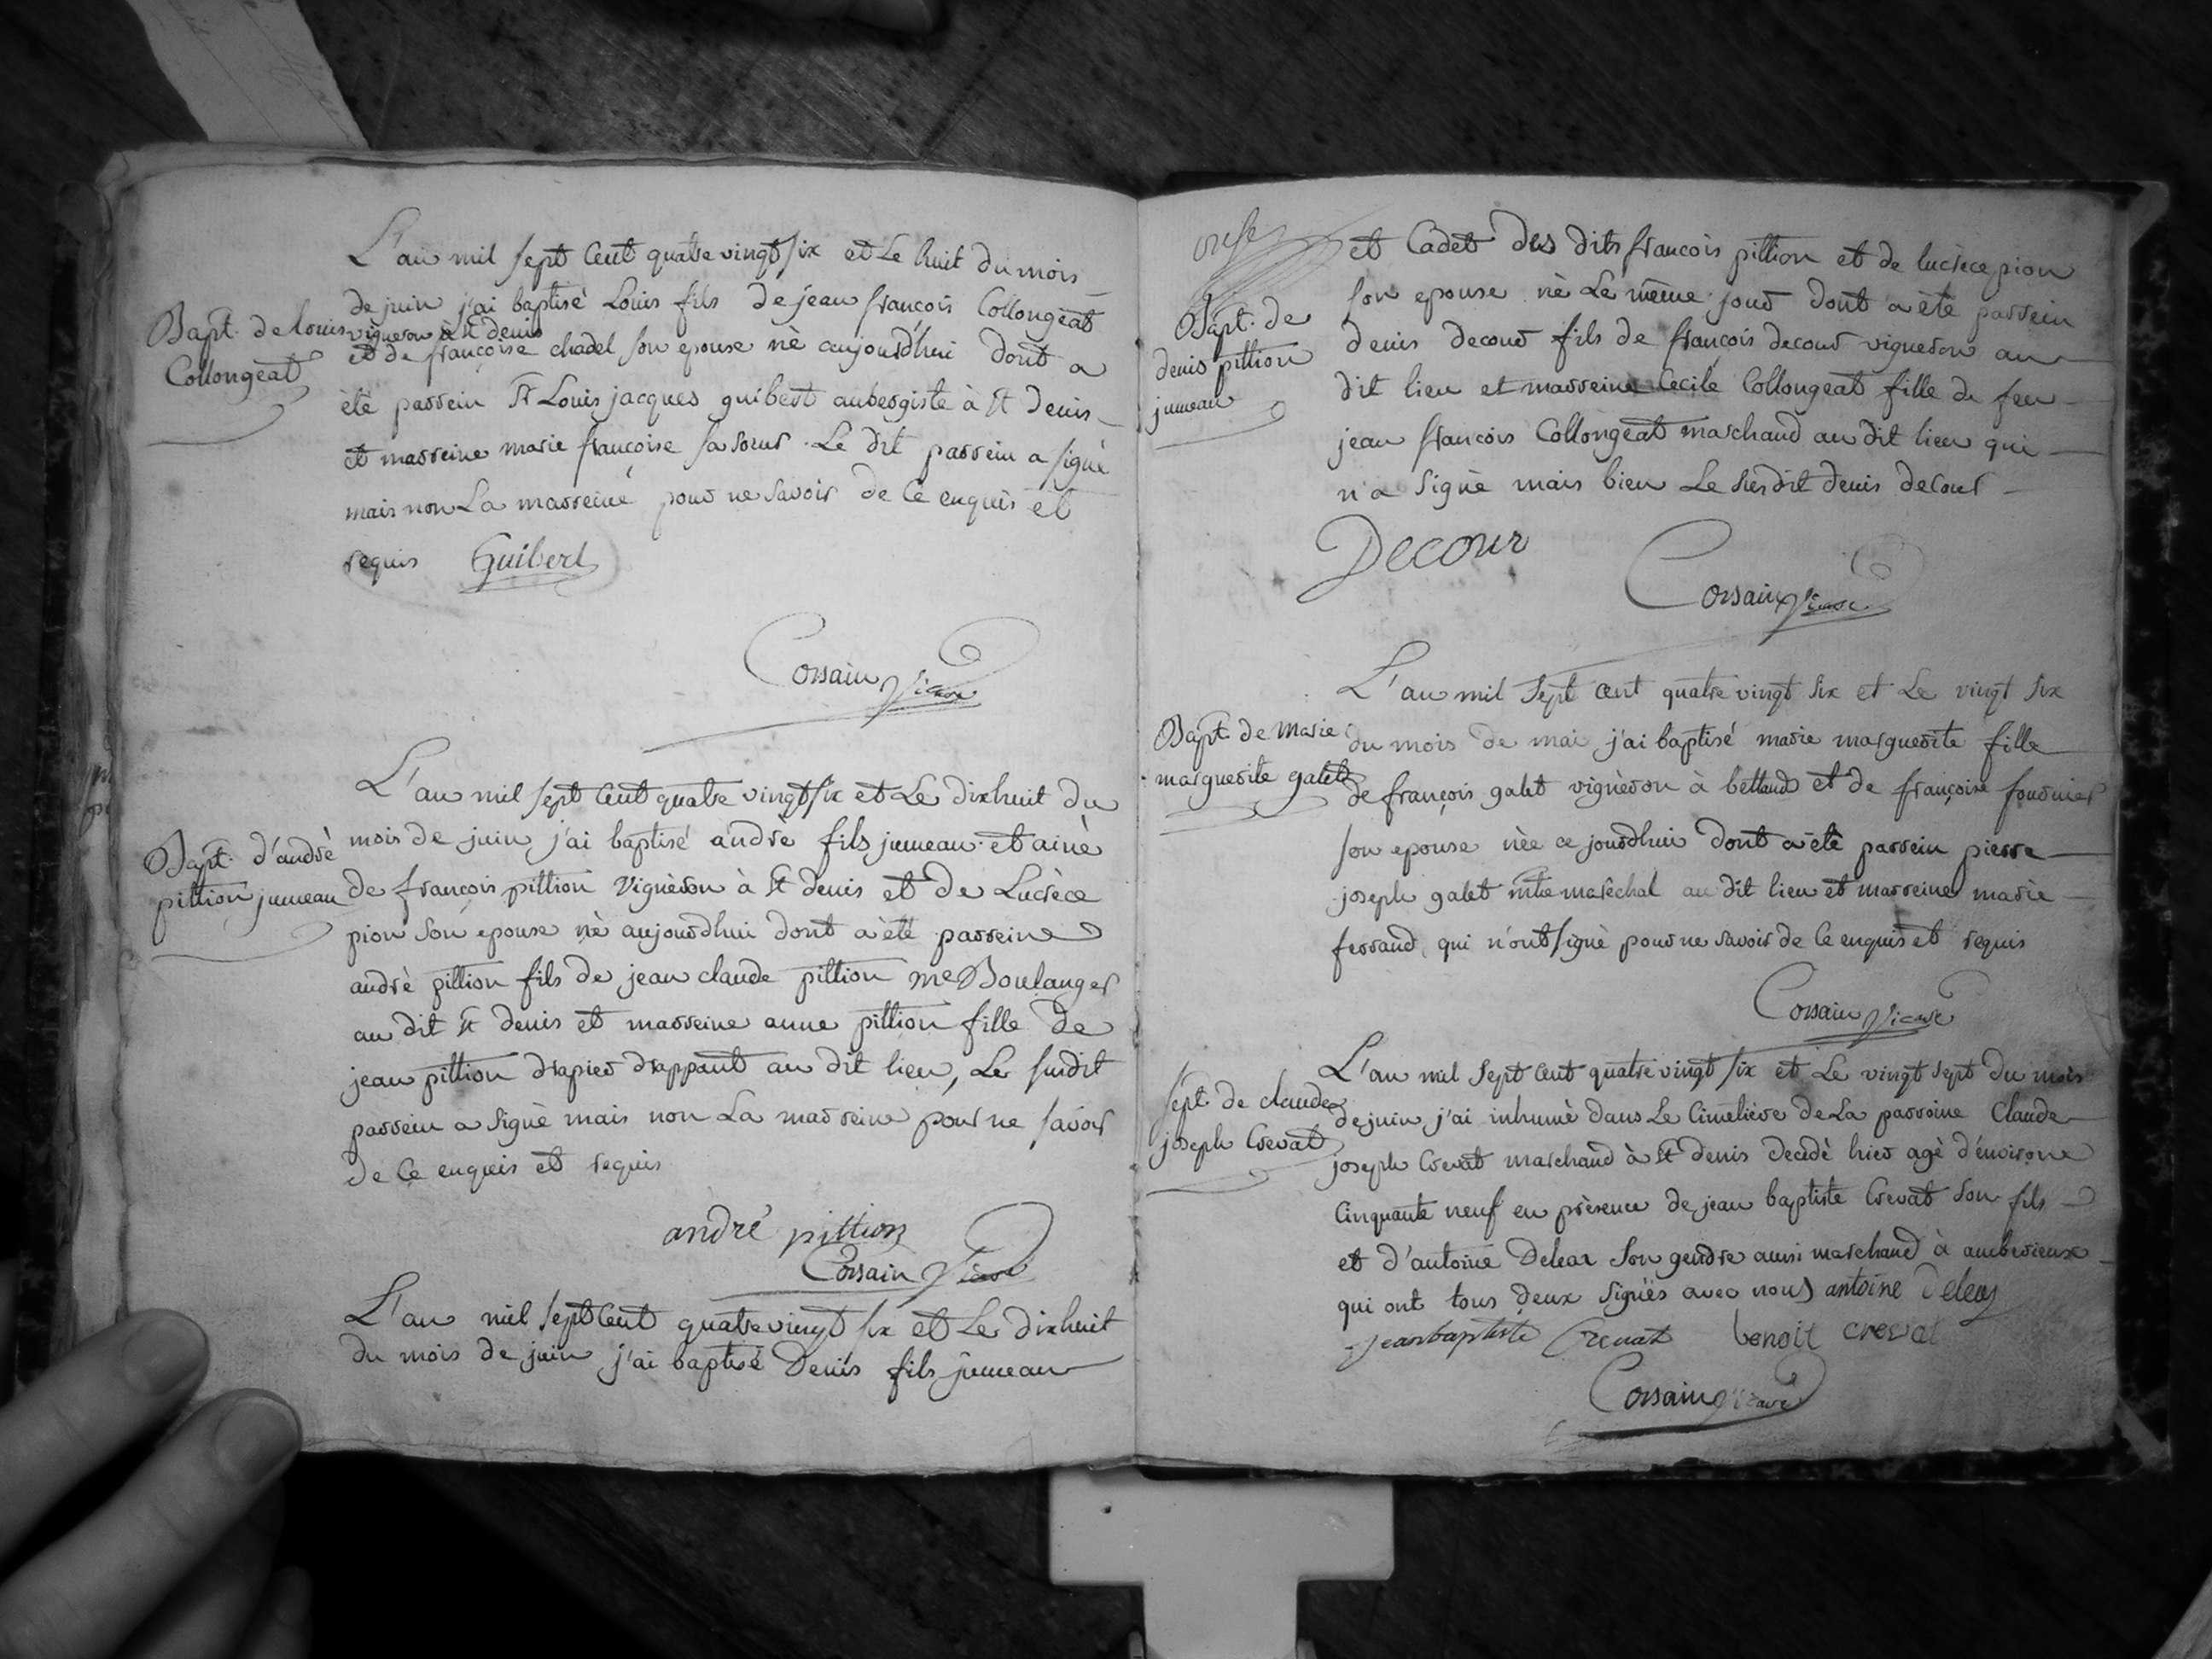 Bapt. de Louis
Collongeat
L'an mil sept cent quatre vingt six et Le huit du mois
de juin j'ai baptisé Louis fils de jean françois Collongeat
vigneron à st denis
et de françoise chadel son epouse nè aujourdhui dont a
èté parrein Sr Louis jacques guibert aubergiste à st denis
et marreine marie françoise sa soeur. Le dit parrein a signè
mais non La marreine pour ne savoir de ce enquis et
requis Guibert
Corsain Vicaire
Bapt. d'andrè
pittion jumeau
L'an mil sept cent quatre vingt six et Le dixhuit du
mois de juin j'ai baptisé andrè fils jumeau et ainè
de françois pittion vignèron à st denis et de Lucrèce
pion son epouse nè aujourdhui dont a èté parreine
andrè pittion fils de jean claude pittion me Boulanger
au dit st denis et marreine anne pittion fille de
jean pittion drapier drappant au dit lieu, Le susdit
parrein a signè mais non La marreine pour ne savoir
de ce enquis et requis
andré pittion
Corsain Vicaire
L'an mil sept cent quatre vingt six et Le dixhuit
du mois de juin j'ai baptisé Denis fils jumeau
onse
Bapt. de
denis pittion
jumeau
et Cadet des dits françois pittion et de lucrèce pion
son epouse nè Le même jour dont a èté parrein
denis decour fils de françois decour vigneron au
dit lieu et marreine Cecile Collongeat fille de feu
jean françois Collongeat marchand au dit lieu qui
n'a signè mais bien Le susdit denis decour
Decour
Corsain Vicaire
Bapt. de marie
marguerite galet
L'an mil sept cent quatre vingt six et Le vingt six
du mois de mai j'ai baptisé marie marguerite fille
de françois galet vignèron à bettand et de françoise fournier
son epouse nèe ce jourdhui dont a èté parrein pierre
joseph galet mtre marêchal au dit lieu et marreine marie
ferrand, qui n'ont signè pour ne savoir de ce enquis et requis
Corsain Vicaire
sept. de claude
joseph Crevat
L'an mil sept cent quatre vingt six et Le vingt sept du mois
de juin j'ai inhumè dans Le Cimetière de La parroine Claude
joseph Crevat marchand à st denis decèdè hier agè d'environ
Cinquante neuf en prèsence de jean baptiste Crevat son fils
et d'antoine Deleaz son gendre aussi marchand à amberieux
qui ont tous deux signès avec nous antoine Deleaz
jeanbaptiste Crevat benoit crevat
Corsain Vicaire